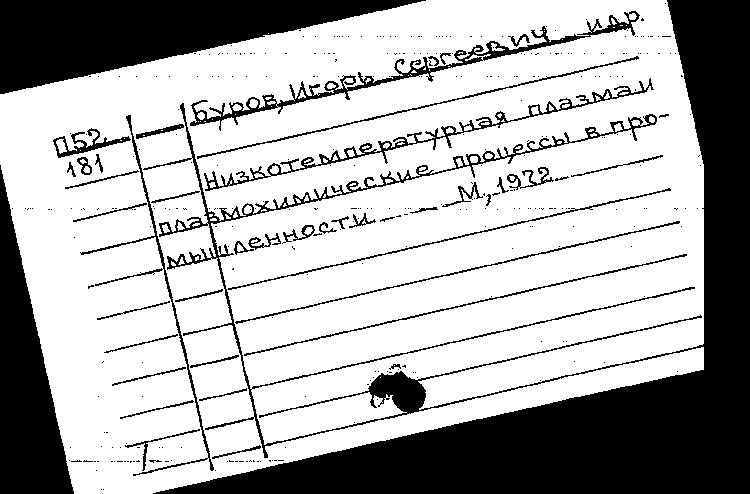 Буров, Игорь Сергеевич и др.
П52
181
Низкотемпературная плазма и
плазмохимические процессы в про-
мышленности. — М., 1972.